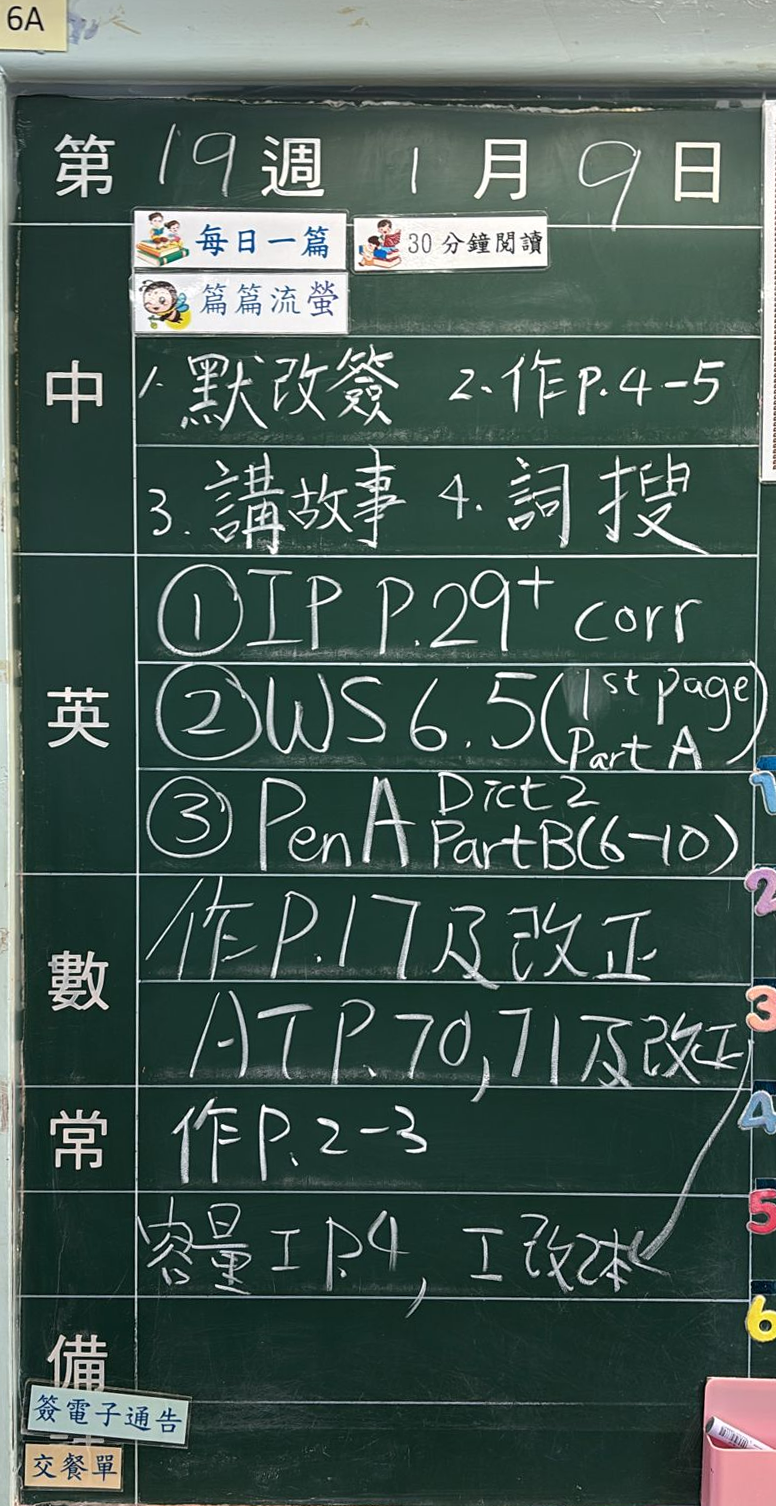 6A
第 19 週 1 月 9 日
每日一篇 30分鐘閱讀
篇篇流螢
中
1. 默改簽 2. 作P.4-5
3. 講故事 4. 詞搜
英
① IP P.29+ corr
② WS 6.5 (1st page Part A)
③ Pen A Dict 2 Part B (6-10)
數
作P.17及改正
AT P.70,71及改正
常
作P.2-3
容量工P.4, 工改本
備
簽電子通告
交餐單
1
2
3
4
5
6